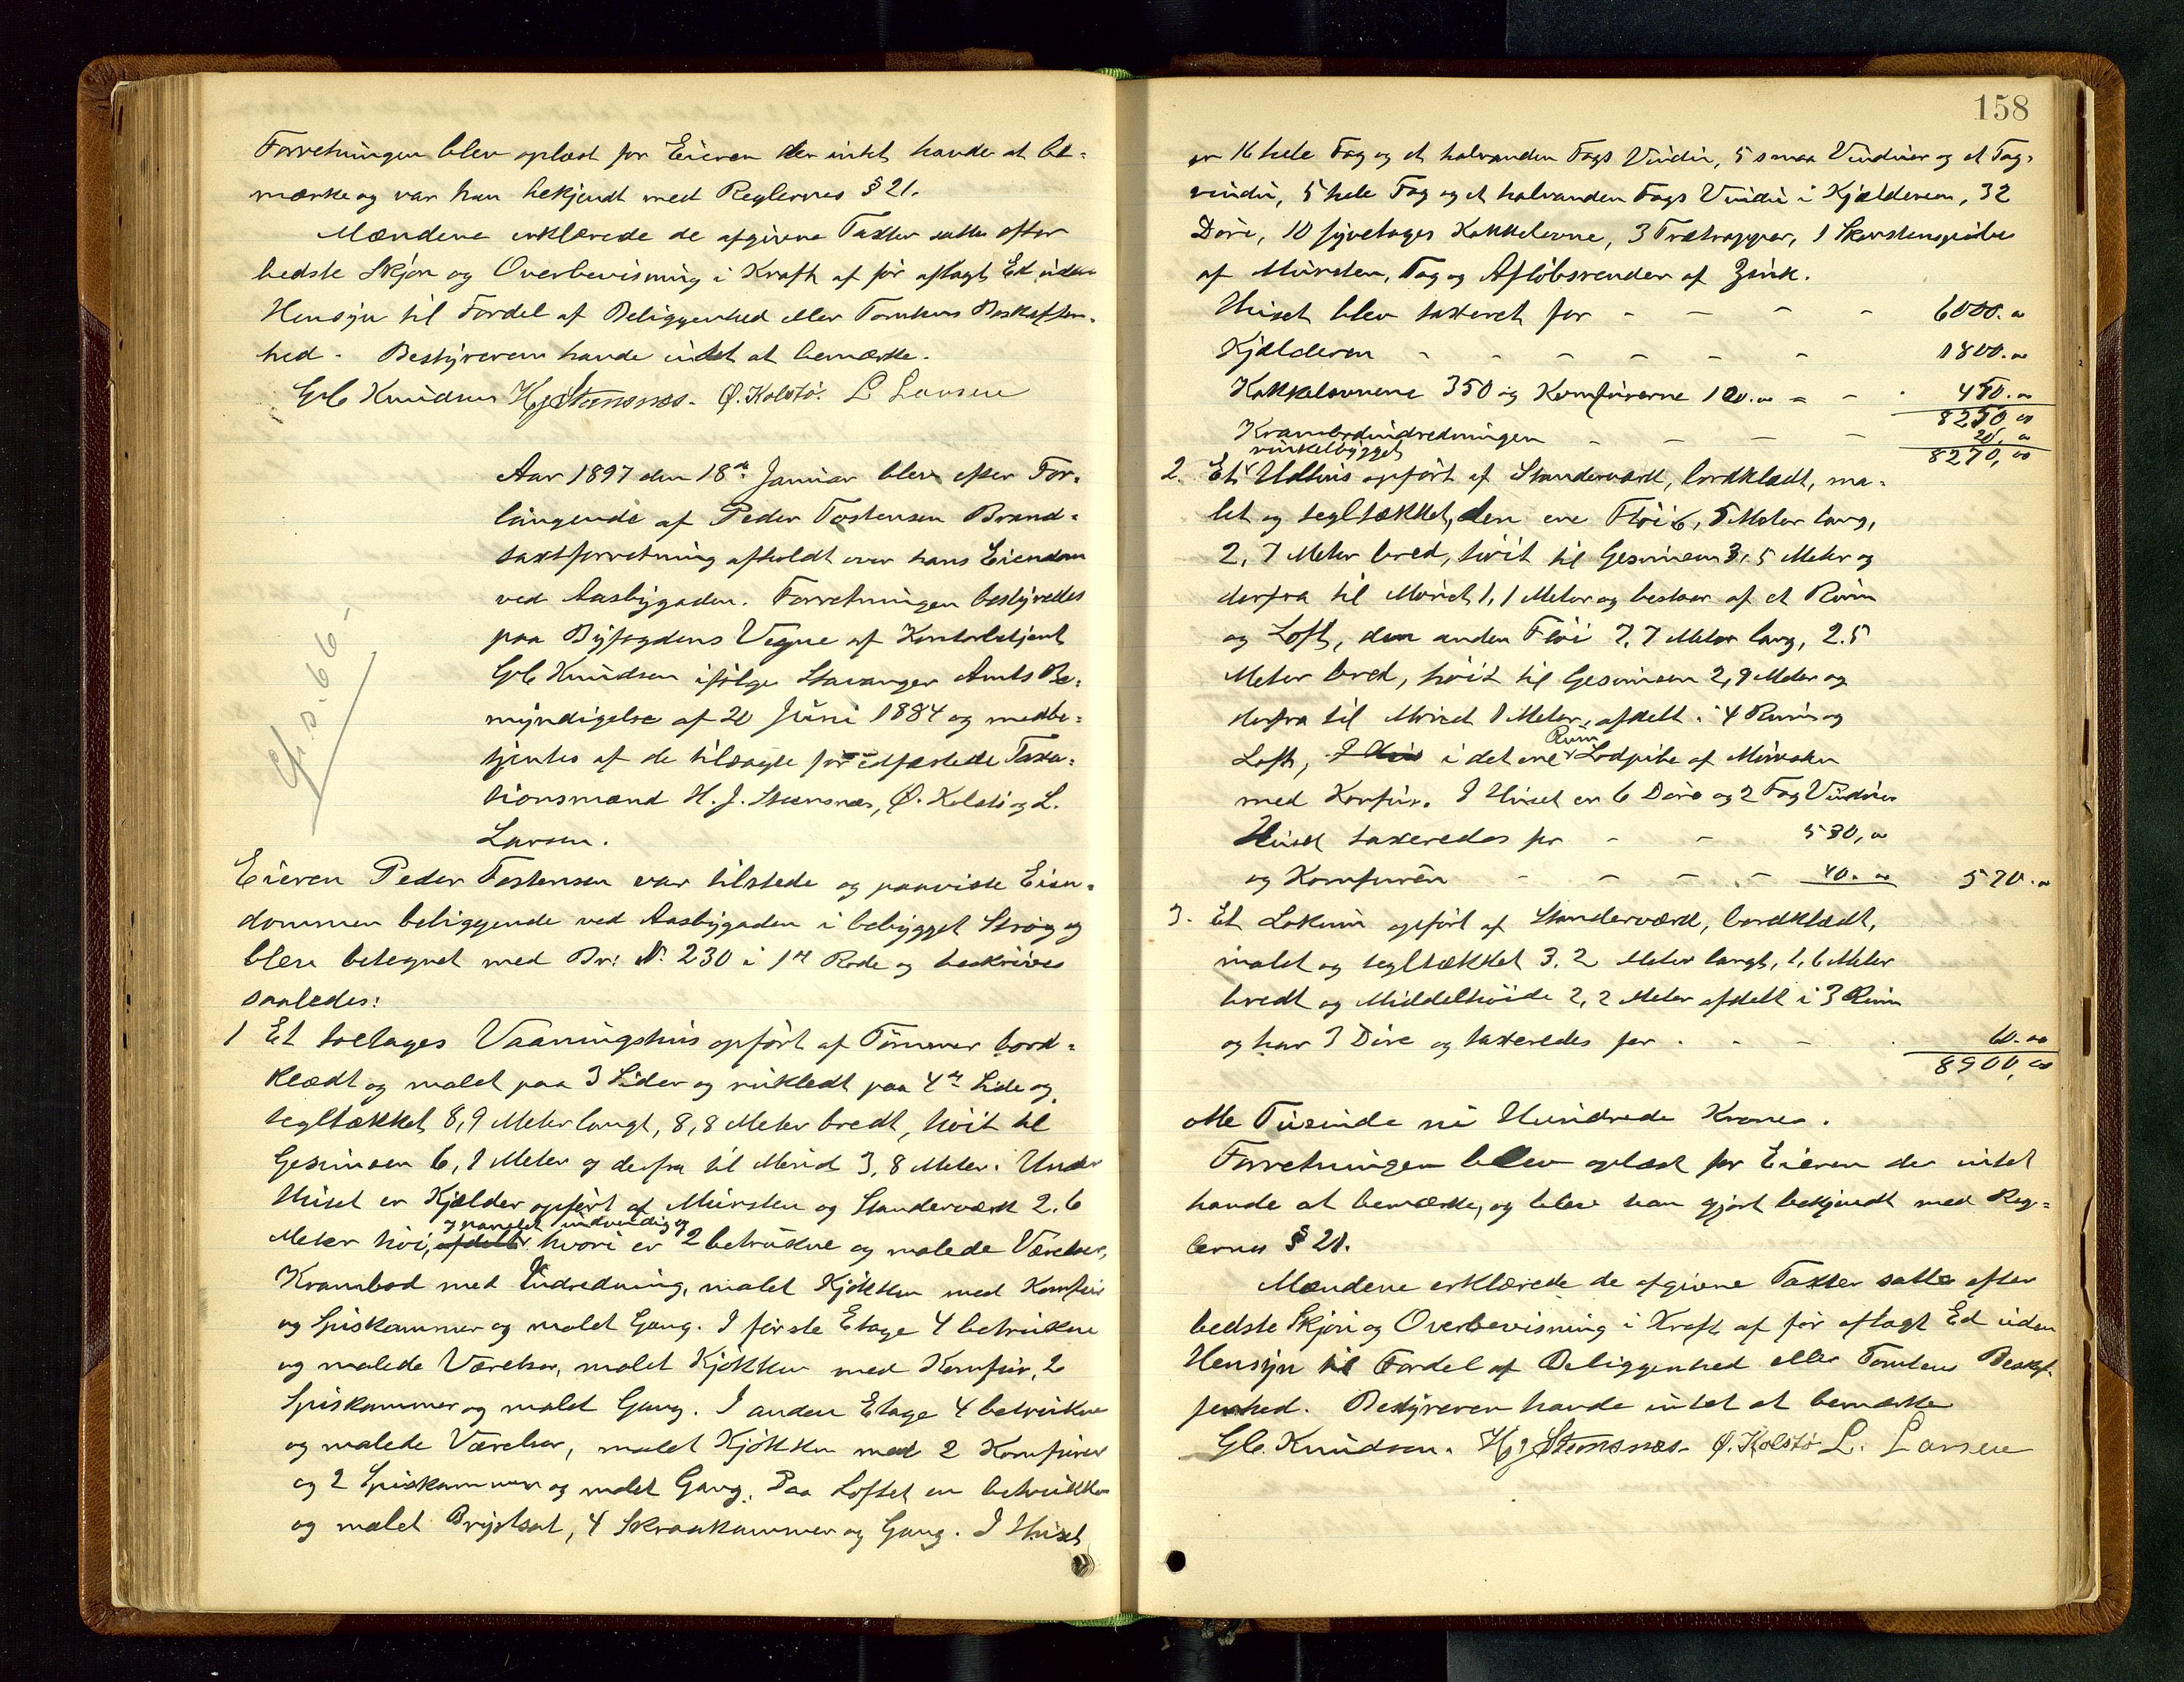 Forretningen blev oplæst for Eieren der intet havde at be-
mærke og var han bekjendt med Reglernes § 21.
Mændene erklærede de afgivne Taxter satte efter
bedste Skjøn og Overbevisning i Kraft af før aflagt Ed uden
Hensyn til Fordel af Beliggenhed eller Tomtens Beskaffen-
hed. Bestyreren havde intet at bemærke.
Knudsen H J Stensnes. Ø. Kolstø. L Larsen
Aar 1897 den 18de Januar blev efter For-
langende af Peder Tostensen Brand-
taxtforretning afholdt over hans Eiendom
ved Aasbygaden. Forretningen bestyredes
paa Byfogdens Vegne af Kontorbetjent
Knudsen ifølge Stavanger Amts Be-
myndigelse af 20 Juni 1884 og medbe-
tjentes af de tilsagte før edfæstede Taxa-
tionsmænd H. J. Steensnæs, Ø. Kolstø og L.
Larsen.
Eieren Peder Tostensen var tilstede og paaviste Eien-
dommen beliggende ved Aasbygaden i bebygget Strøg og
blev betegnet med Br: N. 230 i 1ste Rode og beskrives
saaledes:
1 Et toetages Vaaningshus opført af Tømmer bord-
klædt og malet paa 3 Sider og rukledt paa 4de Side og
tegltækket 8,9 Meter langt, 8,8 Meter bredt, høit til
Gesimsen 6,1 Meter og derfra til Mønid 3,8 Meter. Under
Huset er Kjælder opført af Mursten og Standerværk 2.6
og panelet indvendig og
Meter høi, afdelt hvori er 2 betrukne og malede Værelser,
Krambod med Indredning, malet Kjøkken med Komfur
og Spiskammer og malet Gang. I første Etage 4 betrukne
og malede Værelser, malet Kjøkken med Komfur, 2
Spiskammer og malet Gang. I anden Etage 4 betrukne
og malede Værelser, malet Kjøkken med 2 Komfurer
og 2 Spiskammer og malet Gang. Paa Loftet en betrukken
og malet Brystsal, 4 Skraakammer og Gang. I Huset
158
er 16 hele Fag og et halvanden Fags Vindu, 5 smaa Vinduer og et Tag-
vindu, 5 hele Fag og et halvanden Fags Vindu i Kjælderen, 32
Døre, 10 fyretages Kakkelovne, 3 Trætrapper, 1 Skorstenspibe
af Mursten, Tag og Afløbsrender af Zink.
Huset blev taxeret for - - - - 6000.00
Kjælderen - - - - - - 1800.00
Kakkelovnene 350 og Komfurerne 100.00 - - 450.00
8250 00
Krambodindredningen - - - - 20,00
8270,00
vinkelbygget
2. Et Udhus opført af Standerværk, bordklædt, ma-
let og tegltækket, den ene Fløi 6,5 Meter lang,
2,7 Meter bred, høit til Gesimsen 3,5 Meter og
derfra til Mønet 1,1 Meter og bestaar af et Rum
og Loft, den anden Fløi 7,7 Meter lang, 2.5
Meter bred, høit til Gesimsen 2,9 Meter og
derfra til Mønet 1 Meter, afdelt i 4 Rum og
Rum
Loft, i det ene Lodpibe af Mursten
med Komfur. I Huset er 6 Døre og 2 Fag Vinduer
Huset taxeredes for - - 530,00
og Komfuren - - - - 40.00 570.00
3. Et Lokum opført af Standerværk, bordklædt,
malet og tegltækket 3.2 Meter langt, 1,6 Meter
bredt og Middelhøide 2,2 Meter afdelt i 3 Rum
og har 3 Døre og taxeredes for - - - 60.00
8900,00
otte Tusinde ni Hundrede Kroner.
Forretningen blev oplæst for Eieren der intet
havde at bemærke, og blev han gjort bekjendt med Reg-
lernes § 21.
Mændene erklærede de afgivne Taxter satte efter
bedste Skjøn og Overbevisning i Kraft af før aflagt Ed uden
Hensyn til Fordel af Beliggenhed eller Tomtens Beskaf-
fenhed. Bestyreren havde intet at bemærke
Knudsen. H J Stensnes. Ø. Kolstø L. Larsen